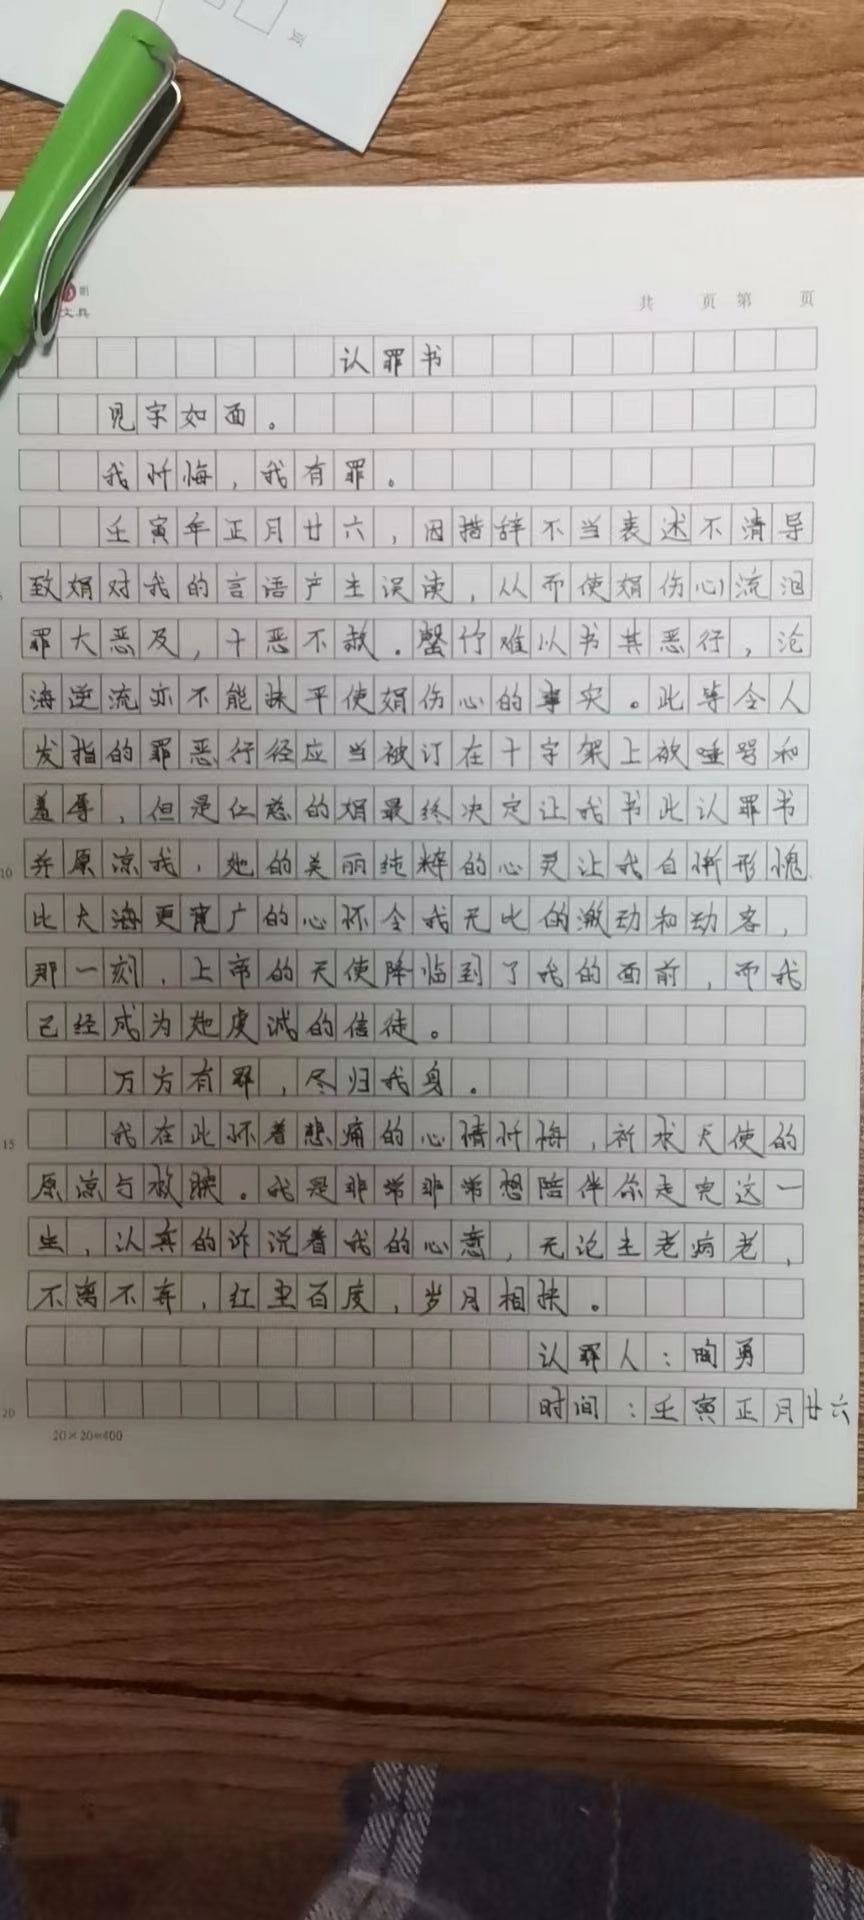 页
明
文具
共 页 第 页
认罪书
见字如面。
我忏悔,我有罪。
壬寅年正月廿六,因措辞不当表述不清导
5
致娟对我的言语产生误读,从而使娟伤心流泪
罪大恶及,十恶不赦。罄竹难以书其恶行,沧
海逆流亦不能抹平使娟伤心的事实。此等令人
发指的罪恶行径应当被订在十字架上被唾骂和
羞辱,但是仁慈的娟最终决定让我书此认罪书
10
并原谅我,她的美丽纯粹的心灵让我自惭形愧
比大海更宽广的心怀令我无比的激动和动容,
那一刻,上帝的天使降临到了我的面前,而我
已经成为她虔诚的信徒。
万方有罪,尽归我身。
15
我在此怀着悲痛的心情忏悔,祈求天使的
原谅与救赎。我是非常非常想陪伴你走完这一
生,认真的诉说着我的心意,无论生老病老,
不离不弃,红尘百度,岁月相扶。
认罪人:陶勇
20
时间:壬寅正月廿六
20×20=400